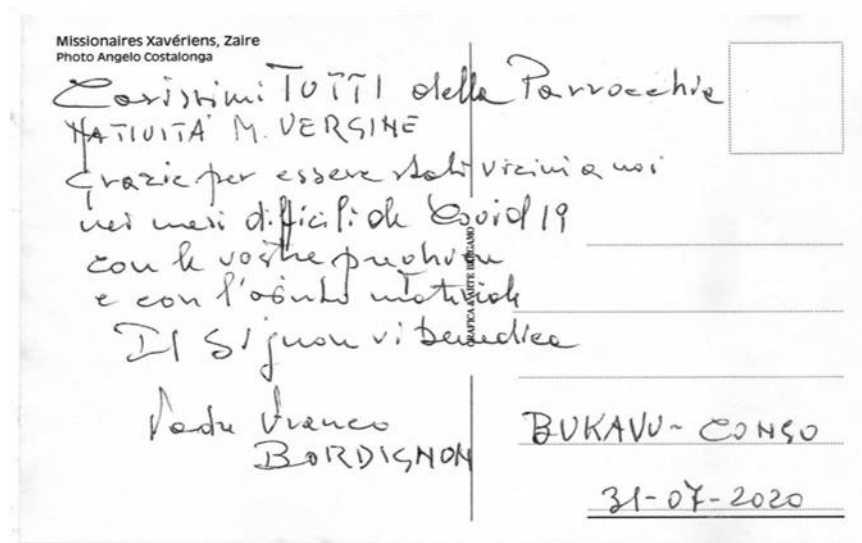 Missionaires Xavériens, Zaire
Photo Angelo Costalonga
Carissimi TUTTI della Parrocchia
NATIVITÀ M. VERGINE
Grazie per essere stati vicini a noi
nei mesi difficili de Covid 19
con le vostre preghiere
e con l'aiuto materiale
Il Signore vi benedica
Padre Franco
BORDIGNON
GRAFICA & ARTE BERGAMO
BUKAVU - CONGO
31-07-2020